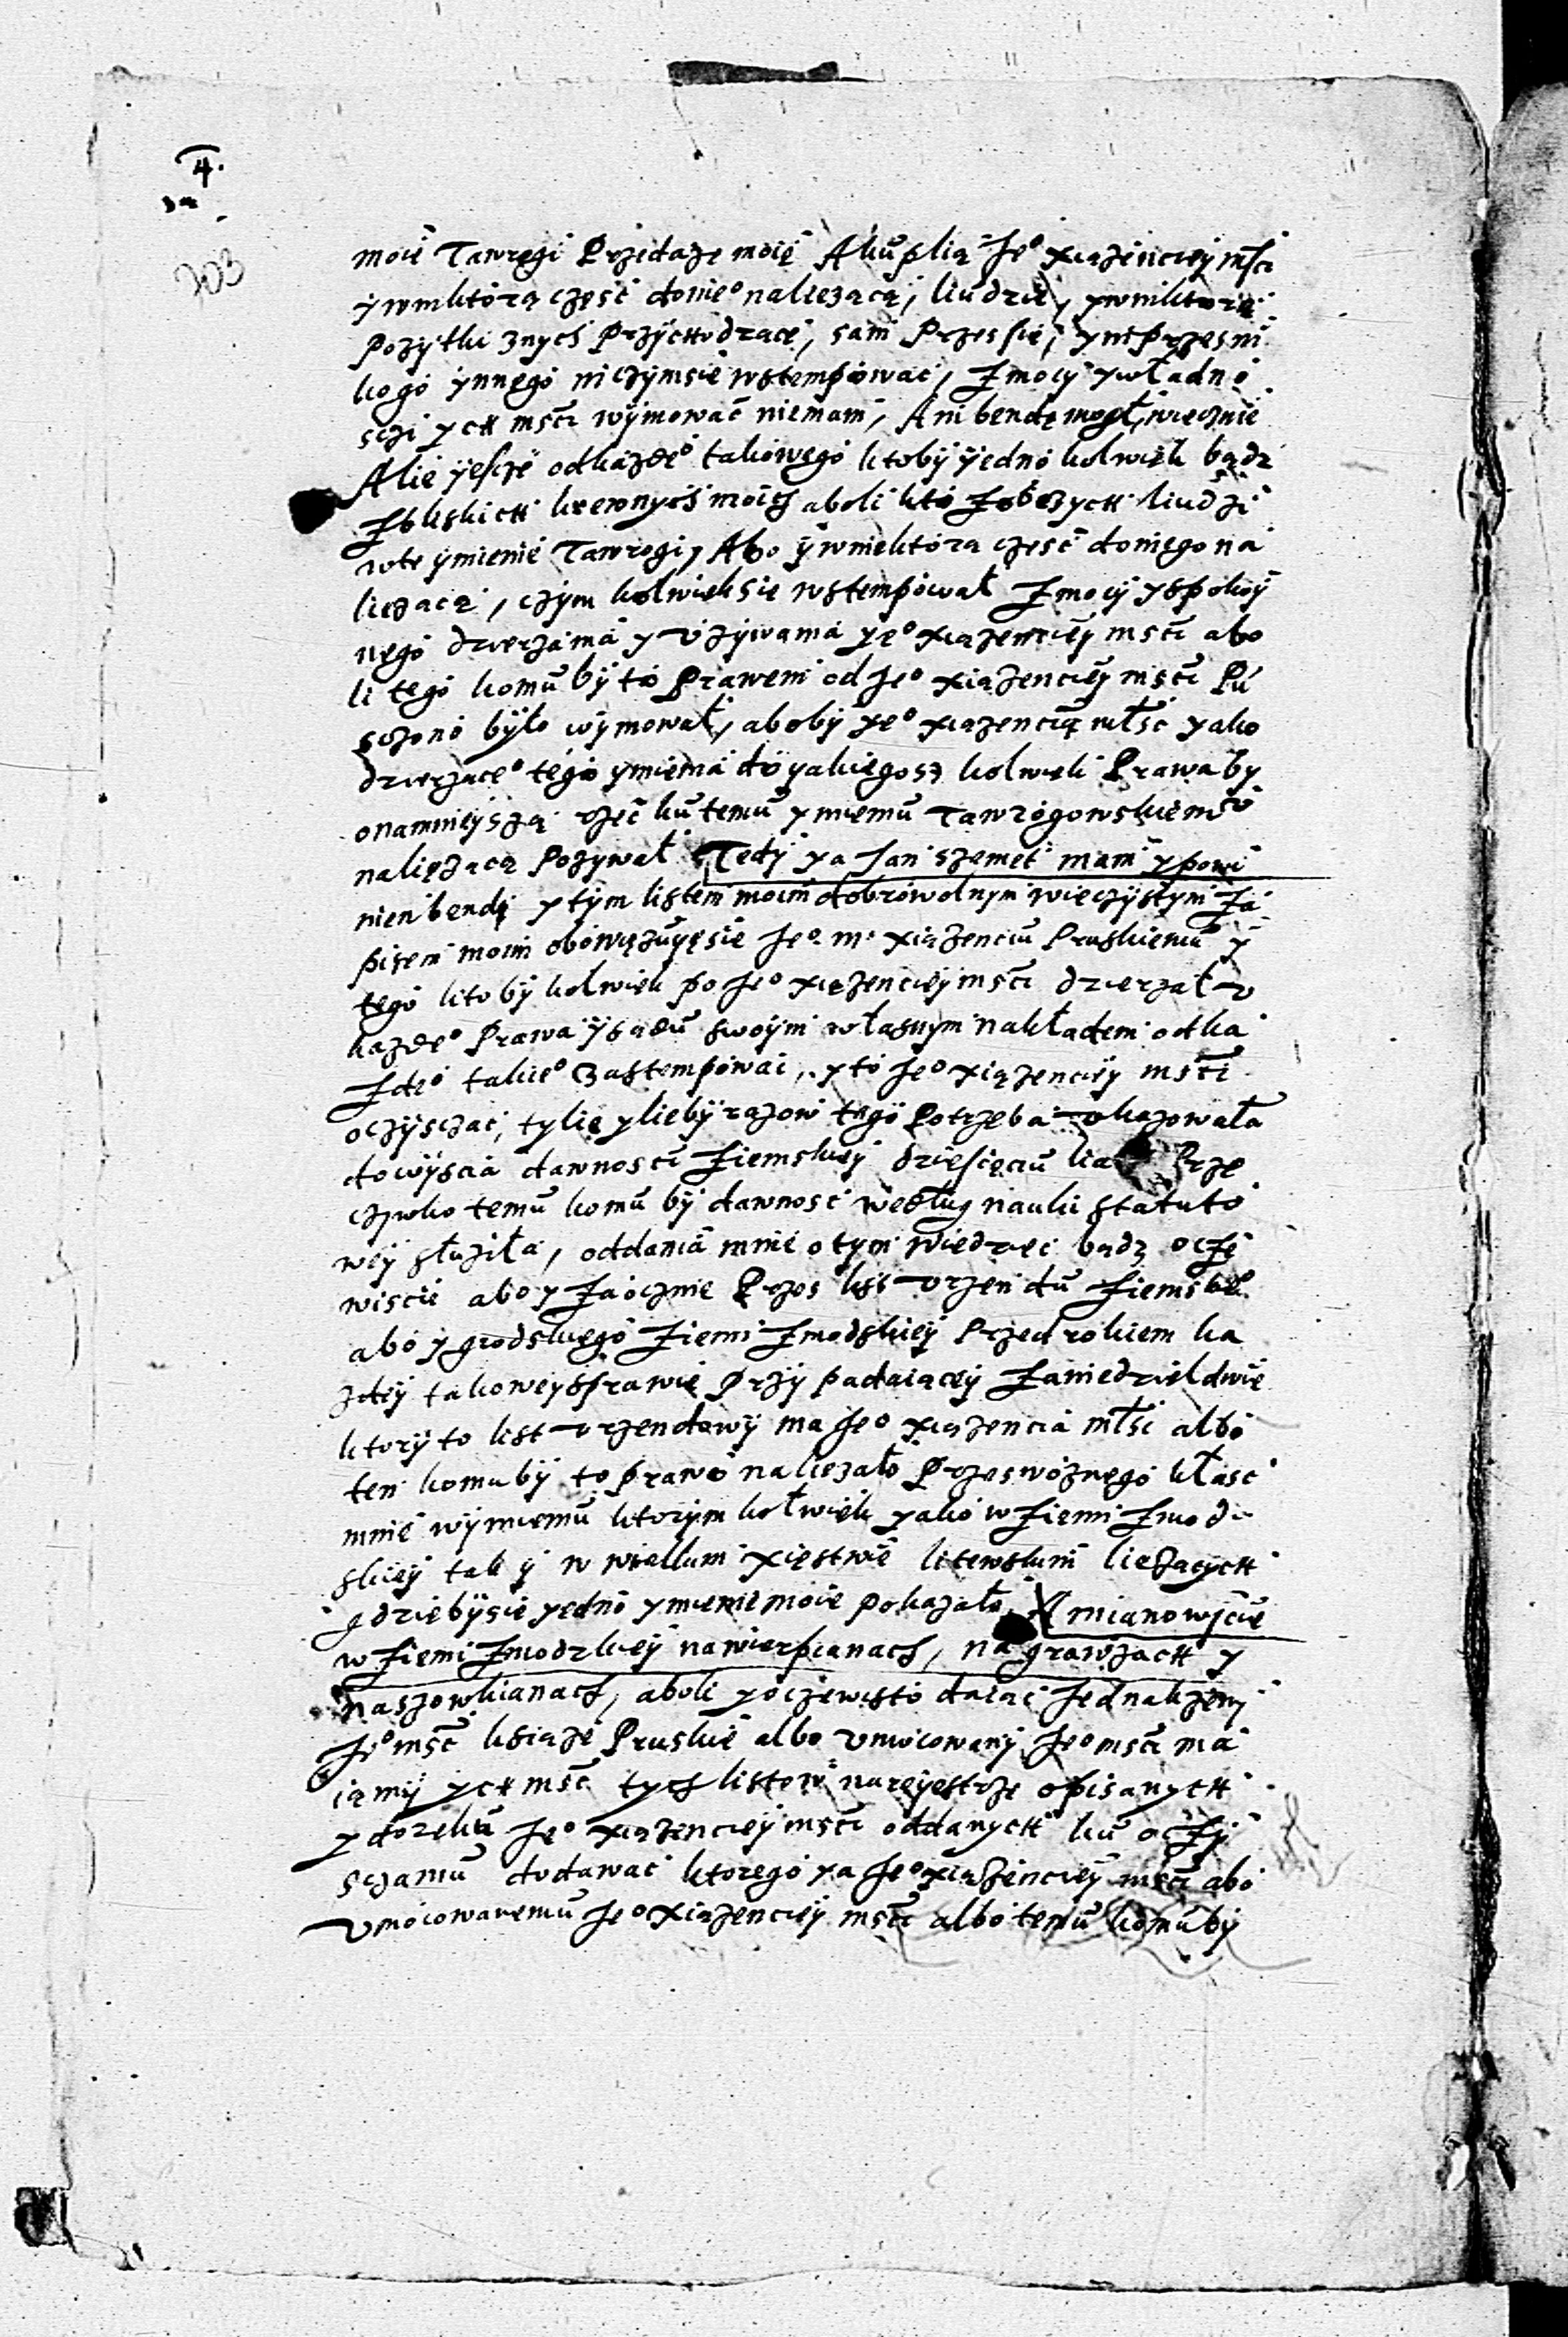 4.
303
moię Tawregi Przedaże moię A kuplią Je° xiążenciey mści
y wniktorą część do nie° należącą, liudzie, y w niktorie
Pożytki z nych Przychodzące, sam Przes się, y nt Przes ni
kogo ynnego niczym się wstempować, z mocy y władno
sczi ych mści wyimować niemam, Ani bendę mogł, wiecznie
Alie yescże od każde° takowego ktoby yedno kolwiek bądz
z bliskich krewnych moich aboli kto z obczych liudzi
w te ymienie Tawrogi, Abo y w niektora cżesć do niego na
lieżacą, czym kolwiek sie wstempował z mocy y spokoy
nego dzierżama y używama ye° xiążenciey mści abo
li tego komu by to Prawem od Je° xiążenciey mści Pu
sczono było wymował, aboby ye° xiążencią młść yako
dzierżące° tego ymienia do yakiegosz kolwiek Prawa by
o namnieyszą rzecż ku temu ymieniu Tawrogowskiemu
należącą Pozywał Tedy ya Jan Szemet mam y powi
nien bendę y tym listem moim dobrowolnym wieczystym za
pisem moim obowięzuyęsie Je° m. xiążenciu Pruskiemu y
tego kto by kolwiek po Je° xiążenciey mści dzierżał u
każde° Prawa y sądu swoym własnym nakładem od ka
żde° takie° zastempowai, y to Je° xiążenciey mści
oczysczac, tylie ylieby razow tego Potrzeba okazowała
do wyścia dawności ziemskiey dziesięciu lia Prze
czywko temu komu by dawnosc według nauki statuto
wey służiła, oddania mnie o tym wiedziec bądz ocże
wiscie abo y zaocznie Przes list urzendu ziemski
abo y grodskiego ziemi zmodskiey Przed rokiem ka
żdey takowey sprawie Przypadaiącey za niedziel dwie
ktory to list urzendowy ma Je° xiążencia młsi albo
ten komuby to prawo należało Przes woznego kłasc
mnie w ymieniu ktorym kolwiek yako w ziemi zmod
skiey tak y w wielkim xięstwie litewskim liezacych
gdzieby sie yedno ymienie moie pokazało, A mianowicie
w ziemi zmodzkiey na wierpianach, na grawżach y
na szowkianach, aboli y oczewisto daiac Jednakżemy
Je° mść ksiąze Pruskie albo umocowany Je° mści ma
ią my ych mść tych listow na reyestrze opisanych
y do reku Je° xiążenciey mści oddanych ku oczy
sczamu dodawac ktorego ya Je° xiążenciey mści abo
umocowanemu Je° xiążenciey mści albo temu komu by